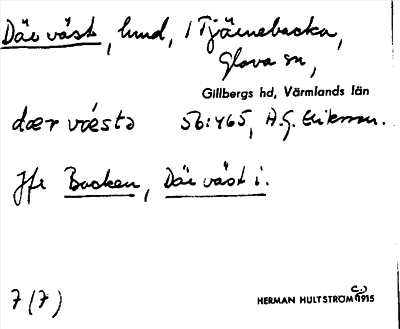 Där väst, hmd, i Tjärnebacka,
Glava sn,
Gillbergs hd, Värmlands län
dær væ´stə 56:465, A.G. Eriksson.
Jfr Backen, Där väst i.
7 (7)
HERMAN HULTSTRÖM(C.) 1915